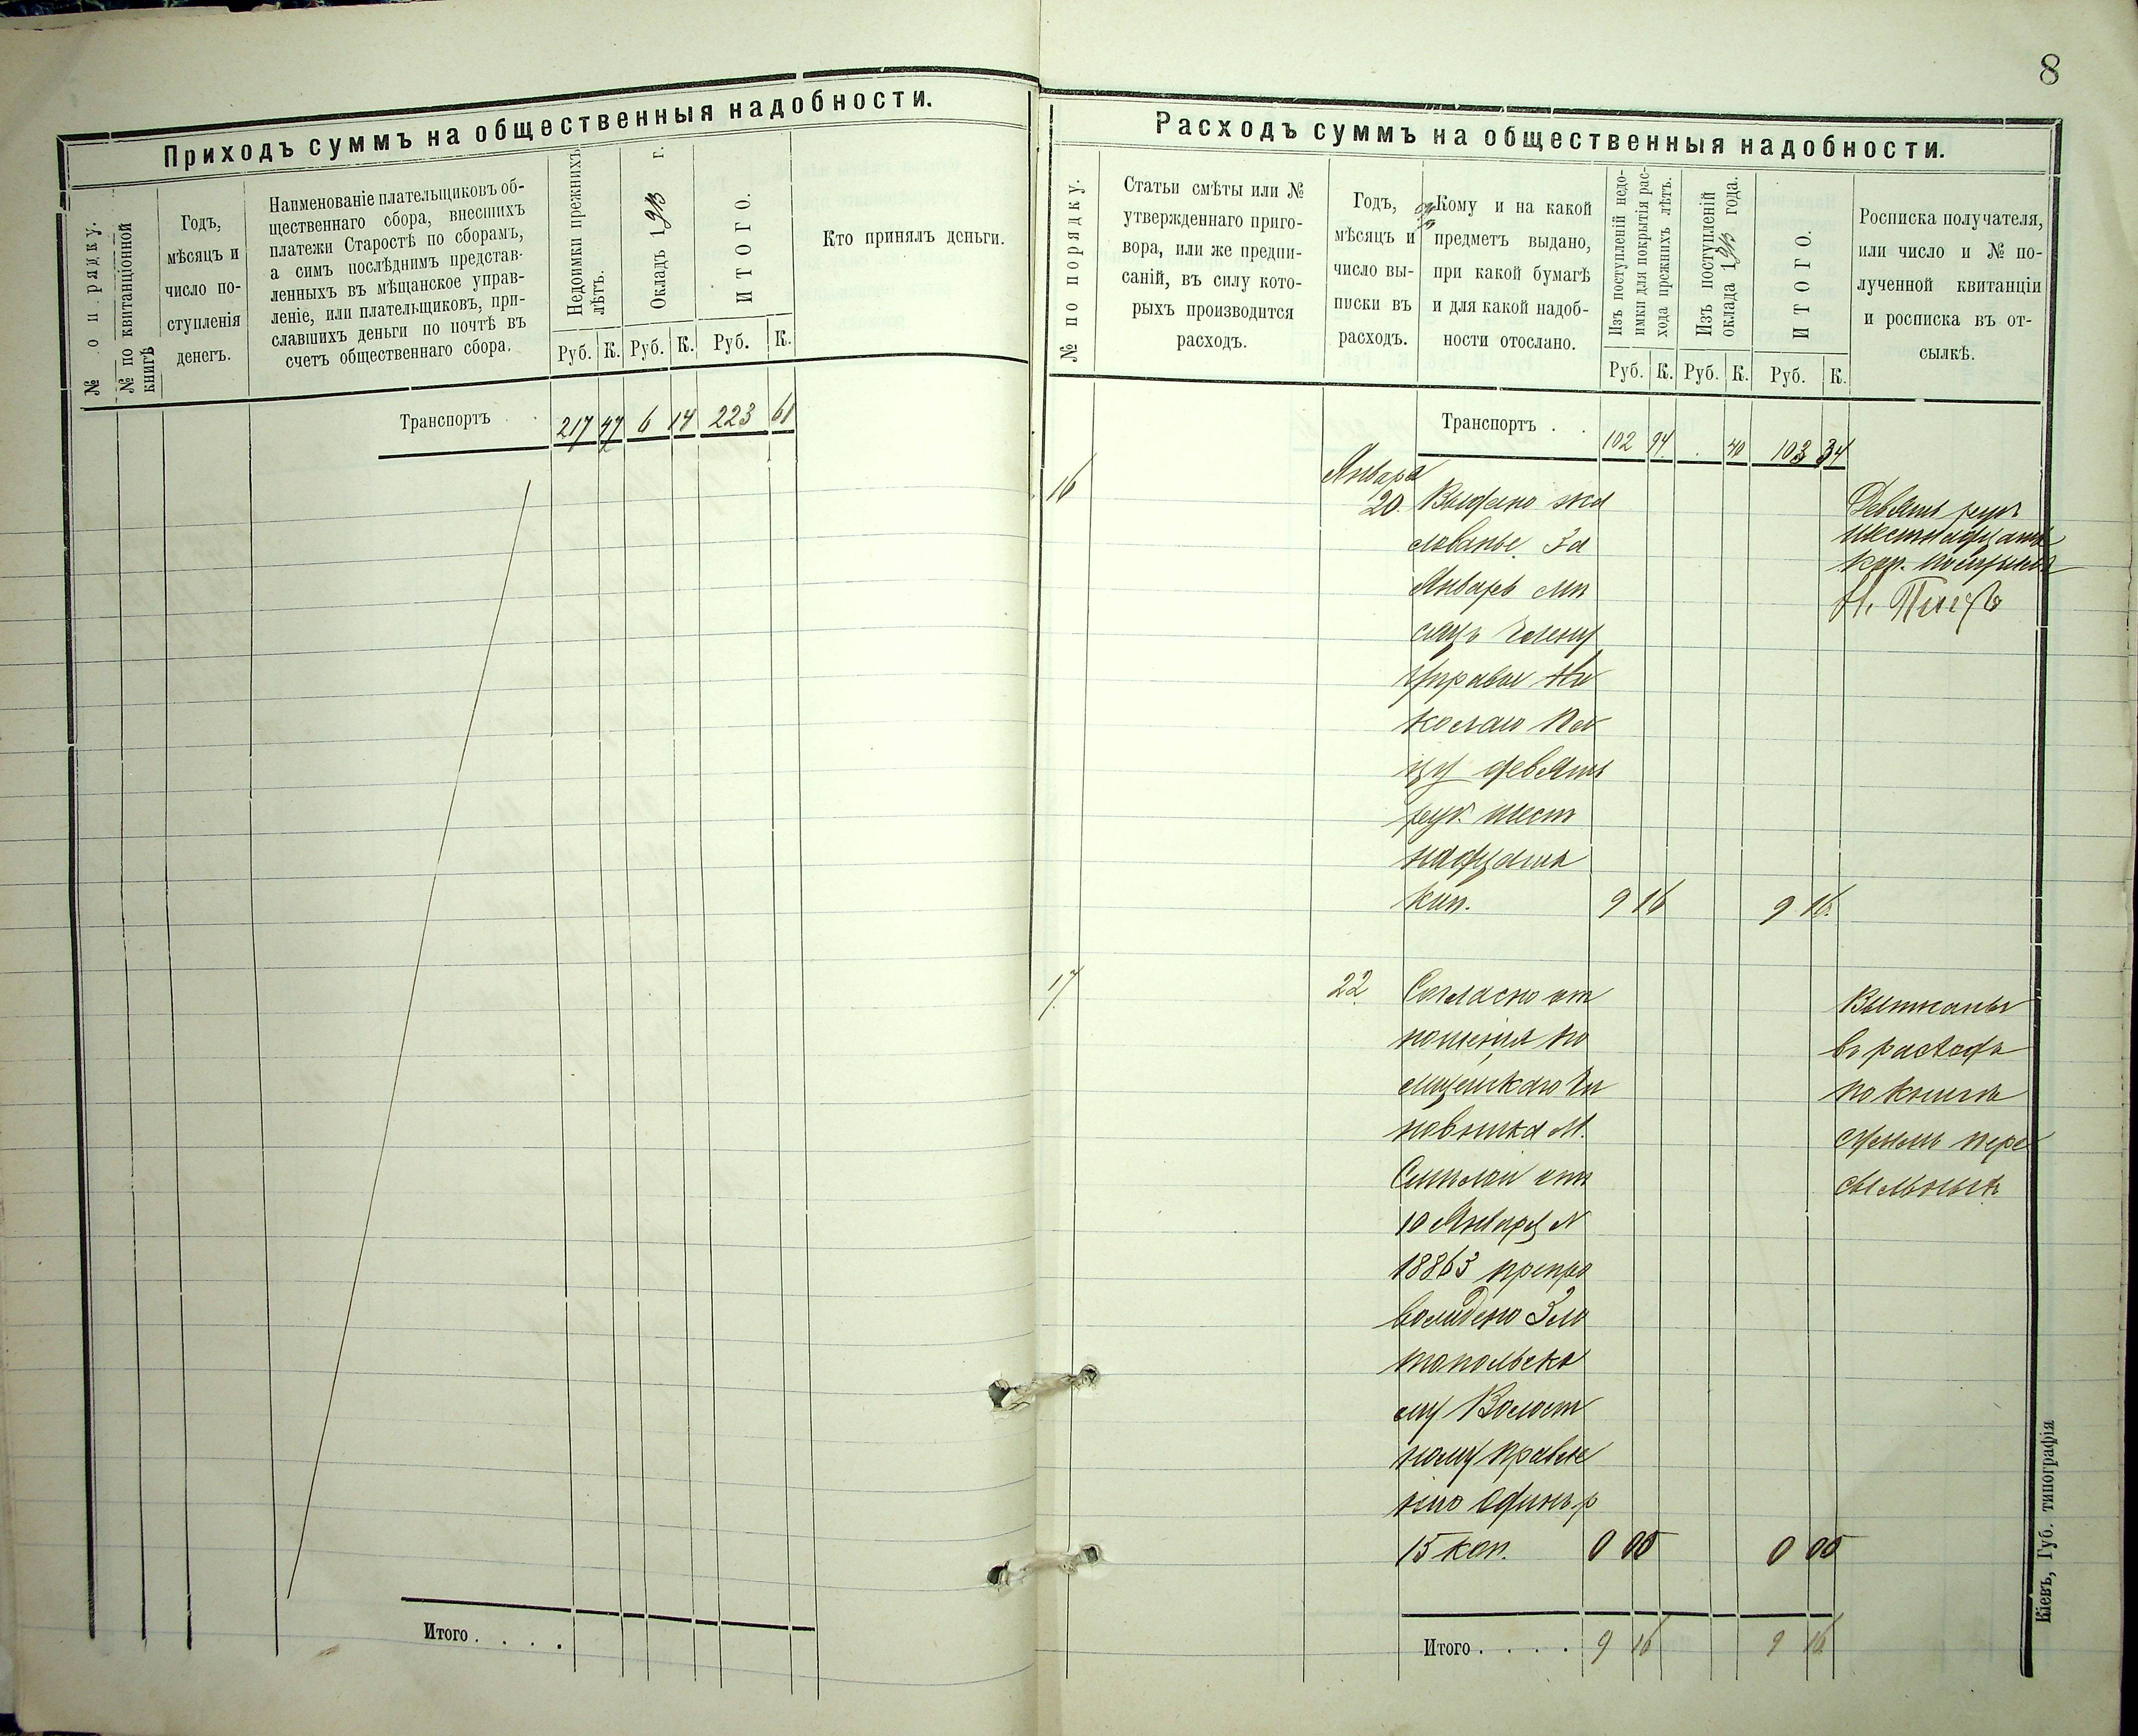 8
Приходъ суммъ на общественныя надобности.
№ по рядку.
№ по квитанціонной
книгѣ
Годъ,
мѣсяцъ и
число по-
ступленія
денегъ.
Наименованіе плательщиковъ об-
щественнаго сбора, внесшихъ
платежи Старостѣ по сборамъ,
а симъ послѣднимъ представ-
ленныхъ въ мѣщанское управ-
леніе, или плательщиковъ, при-
славшихъ деньги по почтѣ въ
счетъ общественнаго сбора.
Недоимки прежнихъ
лѣтъ.
Окладъ 1913 г.
ИТОГО.
Руб. К. Руб. К. Руб. К.
Кто принялъ деньги.
Транспортъ . . 217 47 6 14 223 61
Итого . . . .
Расходъ суммъ на общественныя надобности.
№ по порядку.
Статьи смѣты или №
утвержденнаго приго-
вора, или же предпи-
саній, въ силу кото-
рыхъ производится
расходъ.
Годъ,
мѣсяцъ и
число вы-
писки въ
расходъ.
Кому и на какой
предметъ выдано,
при какой бумагѣ
и для какой надоб-
ности отослано.
Изъ поступленій недо-
имки для покрытія рас-
хода прежнихъ лѣтъ.
Изъ поступленій
оклада 1913 года.
ИТОГО.
Руб. К. Руб. К. Руб. К.
Росписка получателя,
или число и № по-
лученной квитанціи
и росписка въ от-
сылкѣ.
Транспортъ . . 102 94 . 40 103 34
16
Января
20.
Выдано жа
лованье За
Январь мѣ
сяцъ Члену
Управы Ни
колаю
девять
руб. шест
надцать
коп. 9 16 9 16.
Девять руб
шестнадцать
коп. получилъ
Н.
17
22
Согласно от
ношенія по
лицейскаго Чи
новника М.
от
10 Января N
18863 препро
вождено Зло
топольско
му Волост
ному правле
нію Одинъ р
15 коп. 0 00 0 00
Выписаны
въ расходъ
по книгѣ
суммъ пере
сыльныхъ
Итого . . . . 9 16 9 16
Кіевъ, Губ. типографія